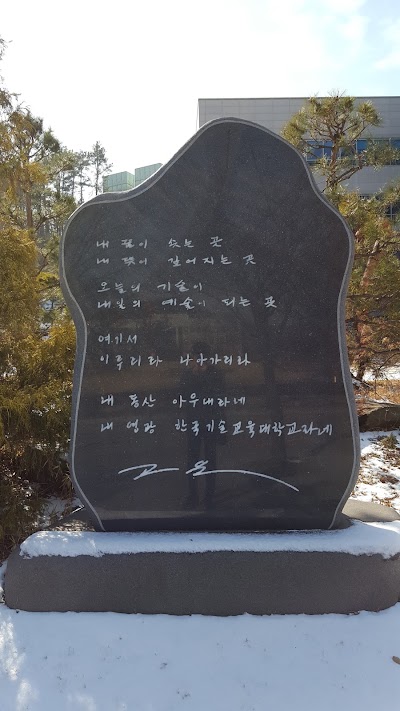 내 꿈이 솟는 곳
내 뜻이 깊어지는 곳
오늘의 기술이
내일의 예술이 되는 곳
여기서
이루리라 나아가리라
내 동산 아우내라네
내 영광 한국기술교육대학교라네
고은